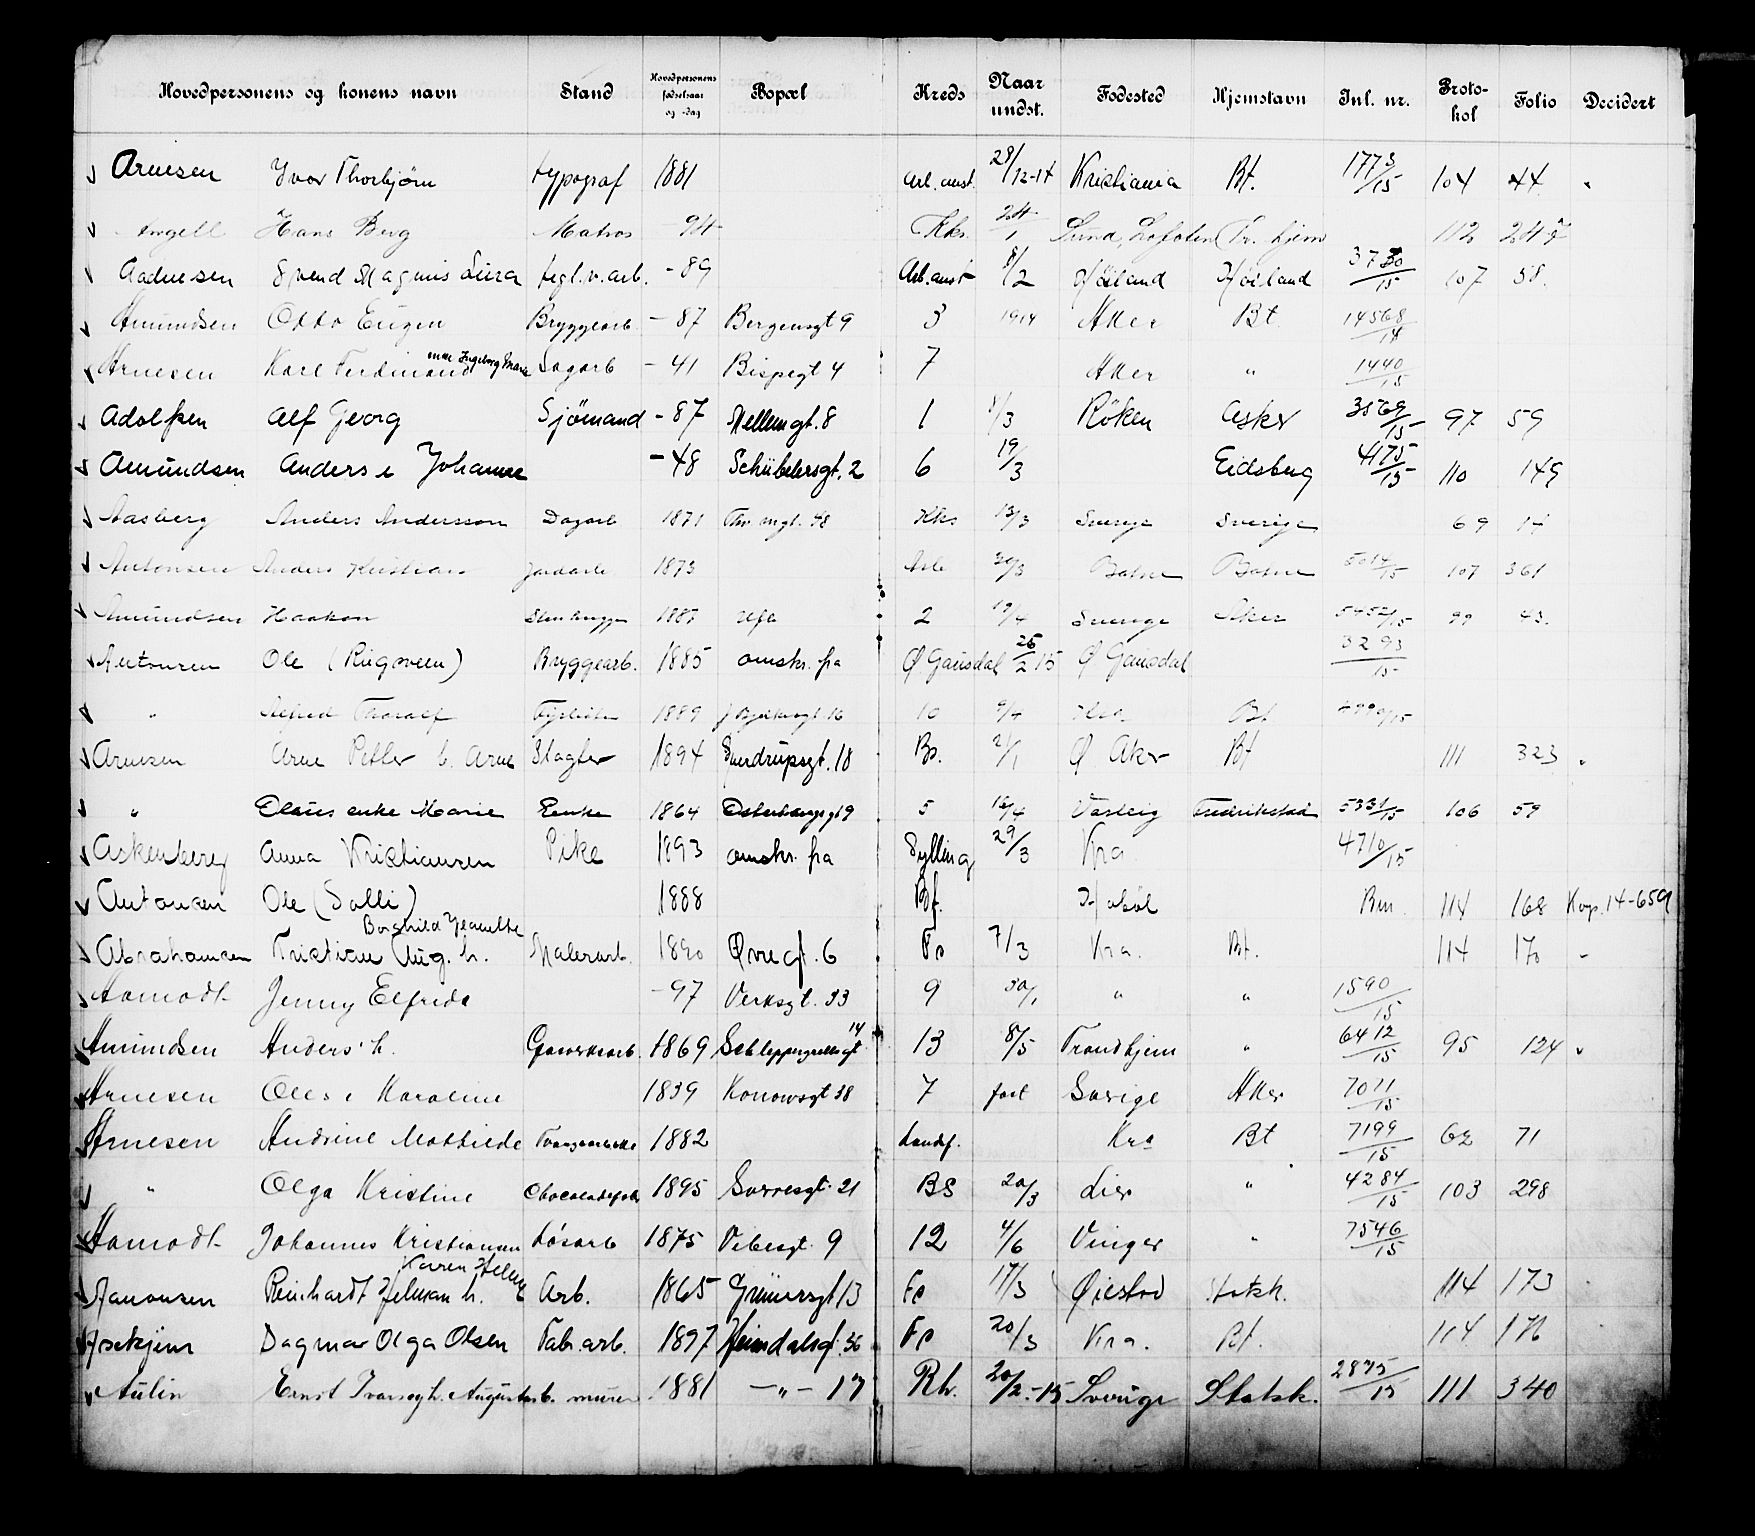 Hovedpersonens og konens navn Stand Hovedpersonens fødselsaar og -dag Bopæl Kreds Naar undst. Fødested Hjemstavn Jnl. nr. Protokol Folio Decidert
Arnesen Yvar Thorbjørn typograf 1881 Arb. anst. 28/12-14 Kristiania Bt. 1773/15 104 44
Angell Hans Berg Matros -94 Kks. 24/1 Sund, Lofoten Tr.hjem 112
Aadnesen Svend Magnus Lura tegl.v.arb. -89 Arb. anst 8/2 Høiland Høiland 3730/15 107 58.
Amundsen Otto Eugen Bryggearb. -87 Bergensgt 9 3 1914 Aker Bt. 14568/14
Arnesen Karl Ferdinand Sagarb -41 Bispegt 4 7 Aker " 1440/15
Adolfsen Alf Georg Sjømand -87 Mellemgt. 8 1 1/3 Røken Asker 3569/15 97 59
Amundsen Anders e Johanne -48 Schübelersgt. 2 6 19/3 Eidsberg 4175/15 110 149
Aasberg Anders Andersson Dagarb 1871 48 Kks 13/3 Sverige Sverige 69 14
Antonsen Anders Kristian Jordarb 1873 Arb 20/3 Botne Botne 107 361
Amundsen Haakon Stenhugger 1887 Ufb 2 19/4 Sverige Aker 5452/15 99 43.
Antonsen Ole (Ringsveen) Bryggearb. 1885 omskr. fra Ø Gausdal 26/2 15 Ø Gausdal 3293/15
" Alfred Thoralf 1889 16 10 9/4 Bt
Arnesen Arne Petter h. Arne Slagter 1894 Sundrupsgt. 18 Bs. 21/1 Ø Aker Bt 111 323
" Claus enke Marie Enke 1864 5 16/4 Fredrikstad 5331/15 106 59
Askenberg Anna Kristiansen Pike 1893 omskr. fra Sylling 29/3 Kra. 4710/15
Antonsen Ole (Solli) 1888 Bf. Hobøl Bm. 114 168 Kop. 14-659
Borghild Jeanette
Abrahamsen Kristian Aug. h. Malerarb. 1890 Øvregt. 6 Fs 7/3 Kra. Bt. 114 170 -
Aamodt Jenny Elfrida -97 Verksgt. 33 9 30/1 " " 1590/15
Amundsen Anders h. Gasverksarb. 1869 Schleppegrellsgt 14 13 8/5 Trondhjem " 6412/15 95 124
Arnesen Oles e Karoline 1839 Konowsgt 38 7 fast Sverige Aker 7071/15
Arnesen Andrine Mathilde 1882 Landf. Kra Bt 7199/15 62 71
" Olga Kristine Chocoladefab 1895 Sorresgt. 21 BS 20/3 Lier " 4284/15 103 298
Aamodt Johannes Kristiansen Løsarb 1875 Vibesgt. 9 12 4/6 Vinger " 7546/15
Karen Helene
Aanonsen Reinhardt Helman h. Arb. 1865 Grünersgt 13 Fs 17/3 Øiestad Statsk. 114 173
Askjem Dagmar Olga Olsen Fabr.arb. 1897 Heimdalsgt. 36 Fs 20/3 Kra. Bt. 114 176
Aulin Ernst Ivarsegh. Augusta b. murer 1881 -"- 17 Rh. 20/2.-15 Sverige Statsk. 2875/15 111 340